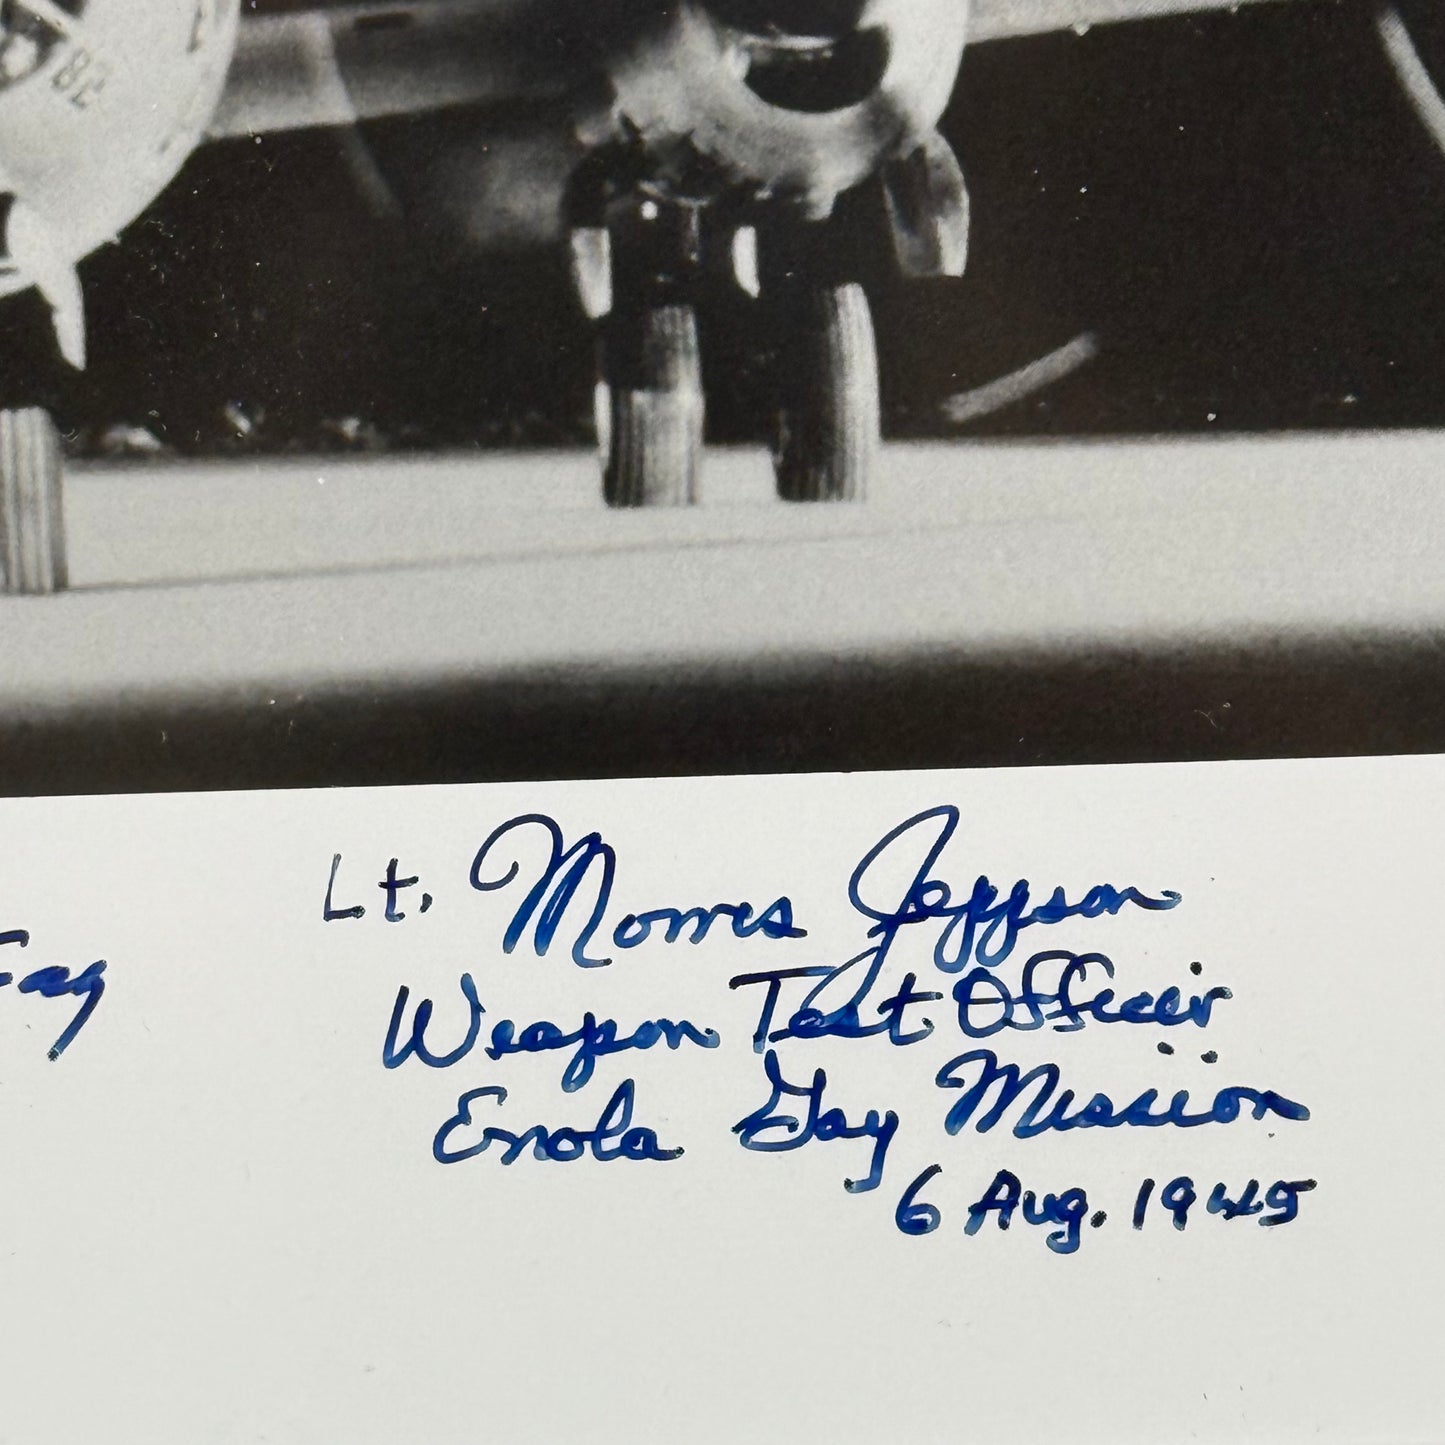 82
Gay
Lt. Morris Jeppson
Weapon Test Officer
Enola Gay Mission
6 Aug. 1945